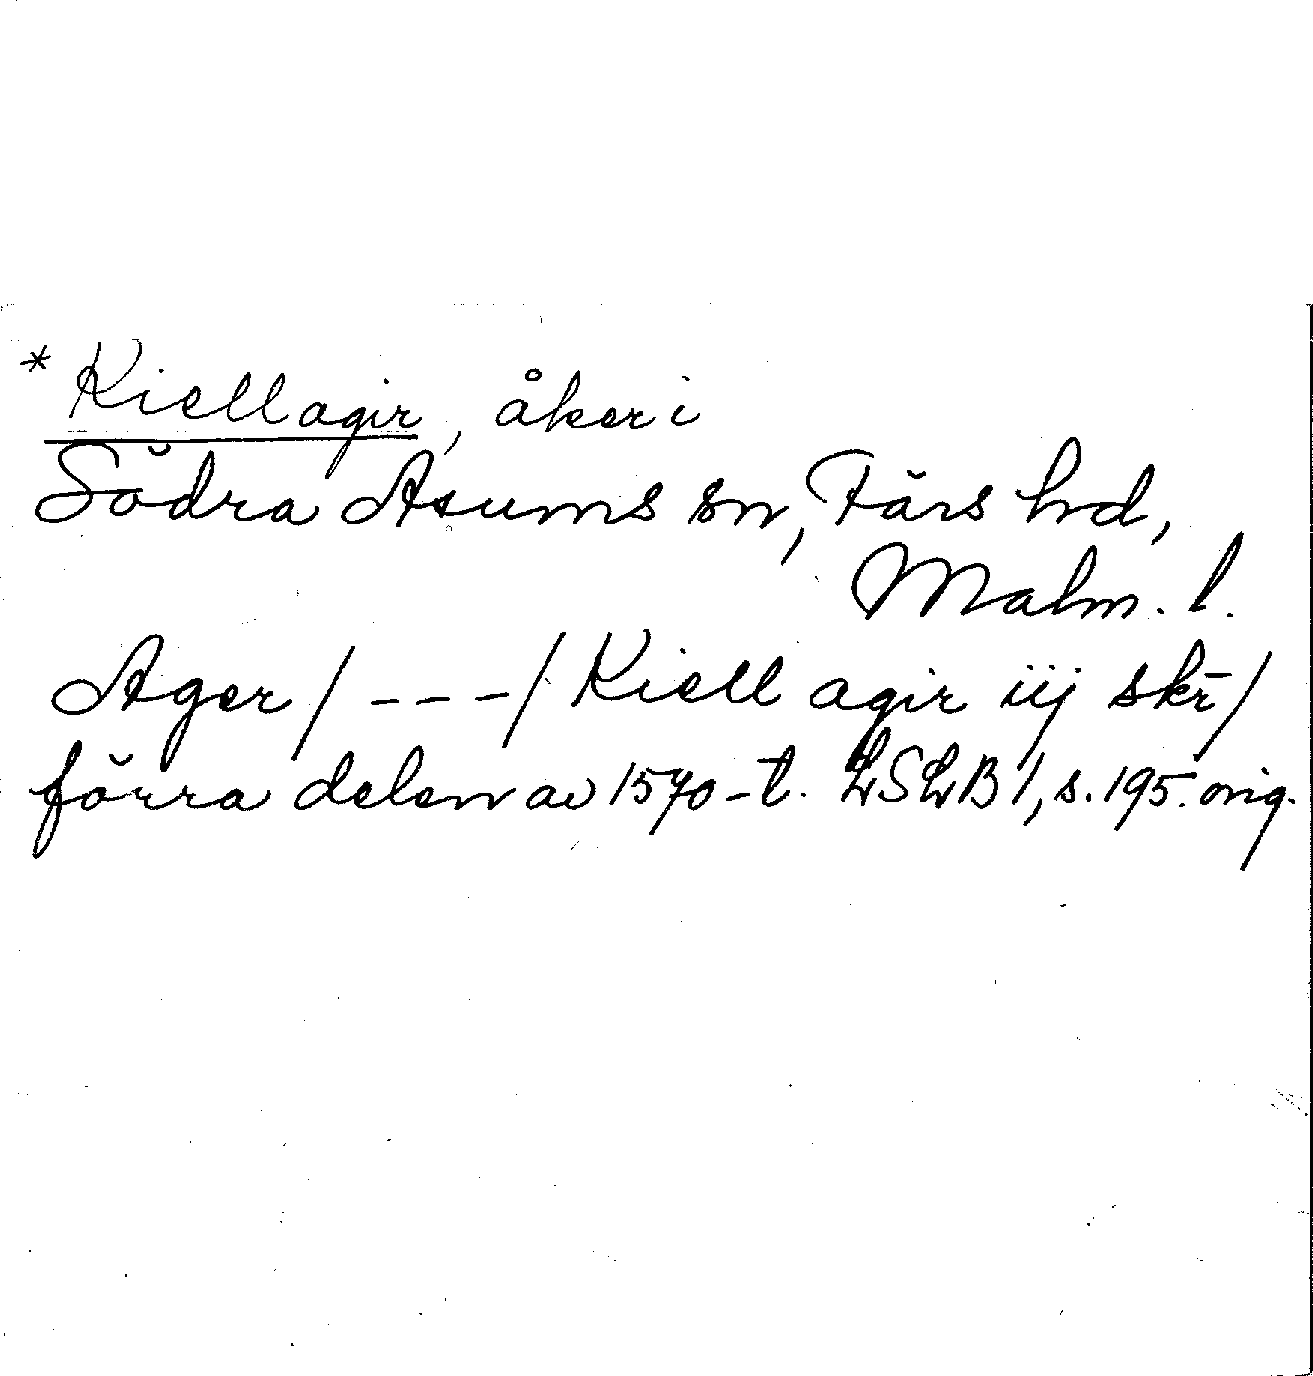 * Kiellagir, åker i
Södra Asums sn, Färs hd,
Malm. l.
Ager / - - - / Kiell agir iij skr̄ /
förra delen av 1570-t. LSLB 1, s. 195. orig.